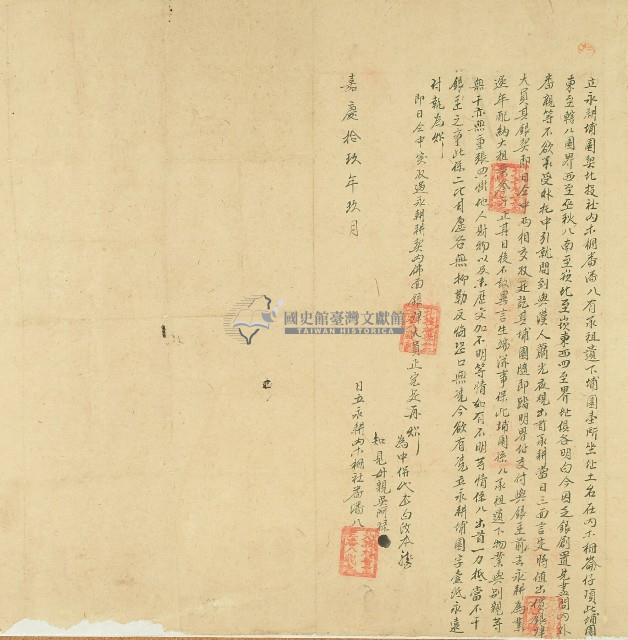 立永耕埔園契北投社內木柵番潘八有承祖遺下埔園壹所坐址土名在內木柵崙仔頂此埔園
東至轄八園界西至巫秋八南至崁北至崁東西四至界址俱各明白今因乏銀創置先盡問內外
番親等不欲承受外托中引就問到與漢人蕭光夜現出首承耕當日三面言定時值出佛銀肆
大員其銀契即日仝中兩相交收足訖其埔園隨即踏明界付交付與銀主前去永耕為業
逐年配納大租 其日後不敢異言生端滋事保此埔園係八承祖遺下物業與別親等
無干亦無重張典掛他人財物以及來歷交加不明等情如有不明等情係八出首一力抵當不干
銀主之事此係二比甘愿各無抑勒反悔恐口無憑今欲有憑立永耕埔園字壹紙永遠
付執為炤
即日仝中實收過永耕契內佛面銀肆大員正完足再炤
為中併代
知見母親
日立永耕內木柵社番潘八
嘉慶拾玖年玖月
國史館臺灣文獻館
TAIWAN HISTORICA